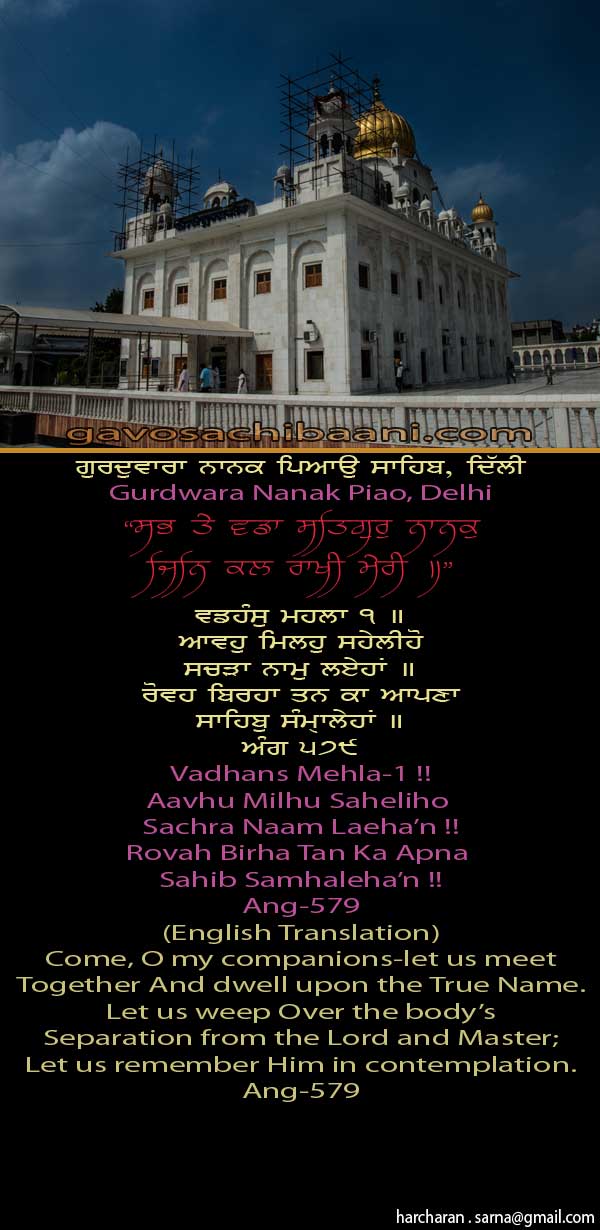 gavosachibaani.com
ਗੁਰਦੁਵਾਰਾ ਨਾਨਕ ਪਿਆਉ ਸਾਹਿਬ, ਦਿੱਲੀ
Gurdwara Nanak Piao, Delhi
“ਸਭ ਤੇ ਵਡਾ ਸਤਿਗੁਰੁ ਨਾਨਕੁ
ਜਿਨਿ ਕਲ ਰਾਖੀ ਮੇਰੀ ॥”
ਵਡਹੰਸੁ ਮਹਲਾ ੧ ॥
ਆਵਹੁ ਮਿਲਹੁ ਸਹੇਲੀਹੋ
ਸਚੜਾ ਨਾਮੁ ਲਏਹਾਂ ॥
ਰੋਵਹ ਬਿਰਹਾ ਤਨ ਕਾ ਆਪਣਾ
ਸਾਹਿਬੁ ਸੰਮ੍ਹਾਲੇਹਾਂ ॥
ਅੰਗ ੫੭੯
Vadhans Mehla-1 !!
Aavhu Milhu Saheliho
Sachra Naam Laeha’n !!
Rovah Birha Tan Ka Apna
Sahib Samhaleha’n !!
Ang-579
(English Translation)
Come, O my companions-let us meet
Together And dwell upon the True Name.
Let us weep Over the body’s
Separation from the Lord and Master;
Let us remember Him in contemplation.
Ang-579
harcharan . sarna@gmail.com